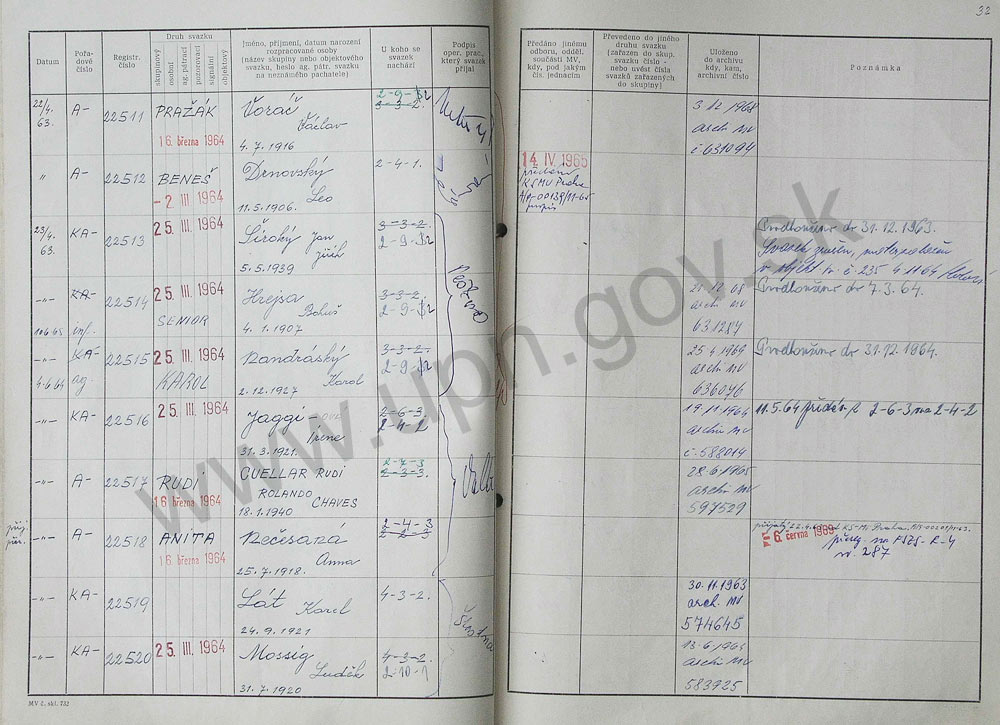 32
Datum
Pořa-
dové
číslo
Registr.
číslo
Druh svazku
skupinový
osobní
ag. pátrací
pozorovací
signální
objektový
Jméno, příjmení, datum narození
rozpracované osoby
(název skupiny nebo objektového
svazku, heslo ag. pátr. svazku
na neznámého pachatele)
U koho se
svazek
nachází
Podpis
oper. prac.,
který svazek
přijal
Předáno jinému
odboru, odděl.
součásti MV,
kdy, pod jakým
čís. jednacím
Převedeno do jiného
druhu svazku
(zařazen do skup.
svazku číslo -
nebo uvést čísla
svazků zařazených
do skupiny)
Uloženo
do archivu
kdy, kam,
archivní číslo
Poznámka
22/4.
63.
A-
22511
PRAŽÁK
16. března 1964
Voráč
Václav
4. 7. 1916
2-9-12
3-3-2.
3. 12. 1968
arch MV
č. 631094
"
A-
22512
BENEŠ
-2. III 1964
Drnovský
Leo
11. 5. 1906.
2-4-1.
14. IV. 1965
předáno
KSMV Praha
23/4.
63.
KA-
22513
25. III. 1964
Široký Jan
5. 5. 1939
3-3-2.
2-9-12
Prodlouženo do 31. 12. 1963.
-"-
KA-
22514
25. III. 1964
SENIOR
inf.
Hrejsa
Bohuš
4. 1. 1907
3-3-2.
2-9-12
arch MV
631284
Prodlouženo do 7. 3. 64.
-"-
KA-
4.6.64
ag.
22515
25. III. 1964
KAROL
Kandráský
Karol
2. 12. 1927
3-3-2.
2-9-12
25. 4. 1969
arch MV
636046
Prodlouženo do 31. 12. 1964.
-"-
KA-
22516
25. III. 1964
Jaggi
Irene
31. 3. 1921.
2-6-3.
2-4-2.
19. 11. 1964
archiv MV
č. 588014
11. 5. 64 předán z 2-6-3 na 2-4-2
-"-
A-
22517
RUDI
16. března 1964
CUELLAR RUDI
ROLANDO
CHAVES
18. 1. 1940
2-7-3
2-3-3.
28. 6. 1965
archiv MV
597529
-"-
A-
22518
ANITA
16. března 1964
Nečesaná
Anna
25. 7. 1918.
2-4-3
2-2-3.
6. června 1969
-"-
KA-
22519
Lát Karel
24. 9. 1921
4-3-2.
30. 11. 1963
arch. MV
574645
-"-
KA-
22520
25. III. 1964
Mossig
Luděk
31. 7. 1920
4-3-2.
2-10-1
13. 6. 1964
archiv MV
583925
MV č. skl. 732
www.upn.gov.sk